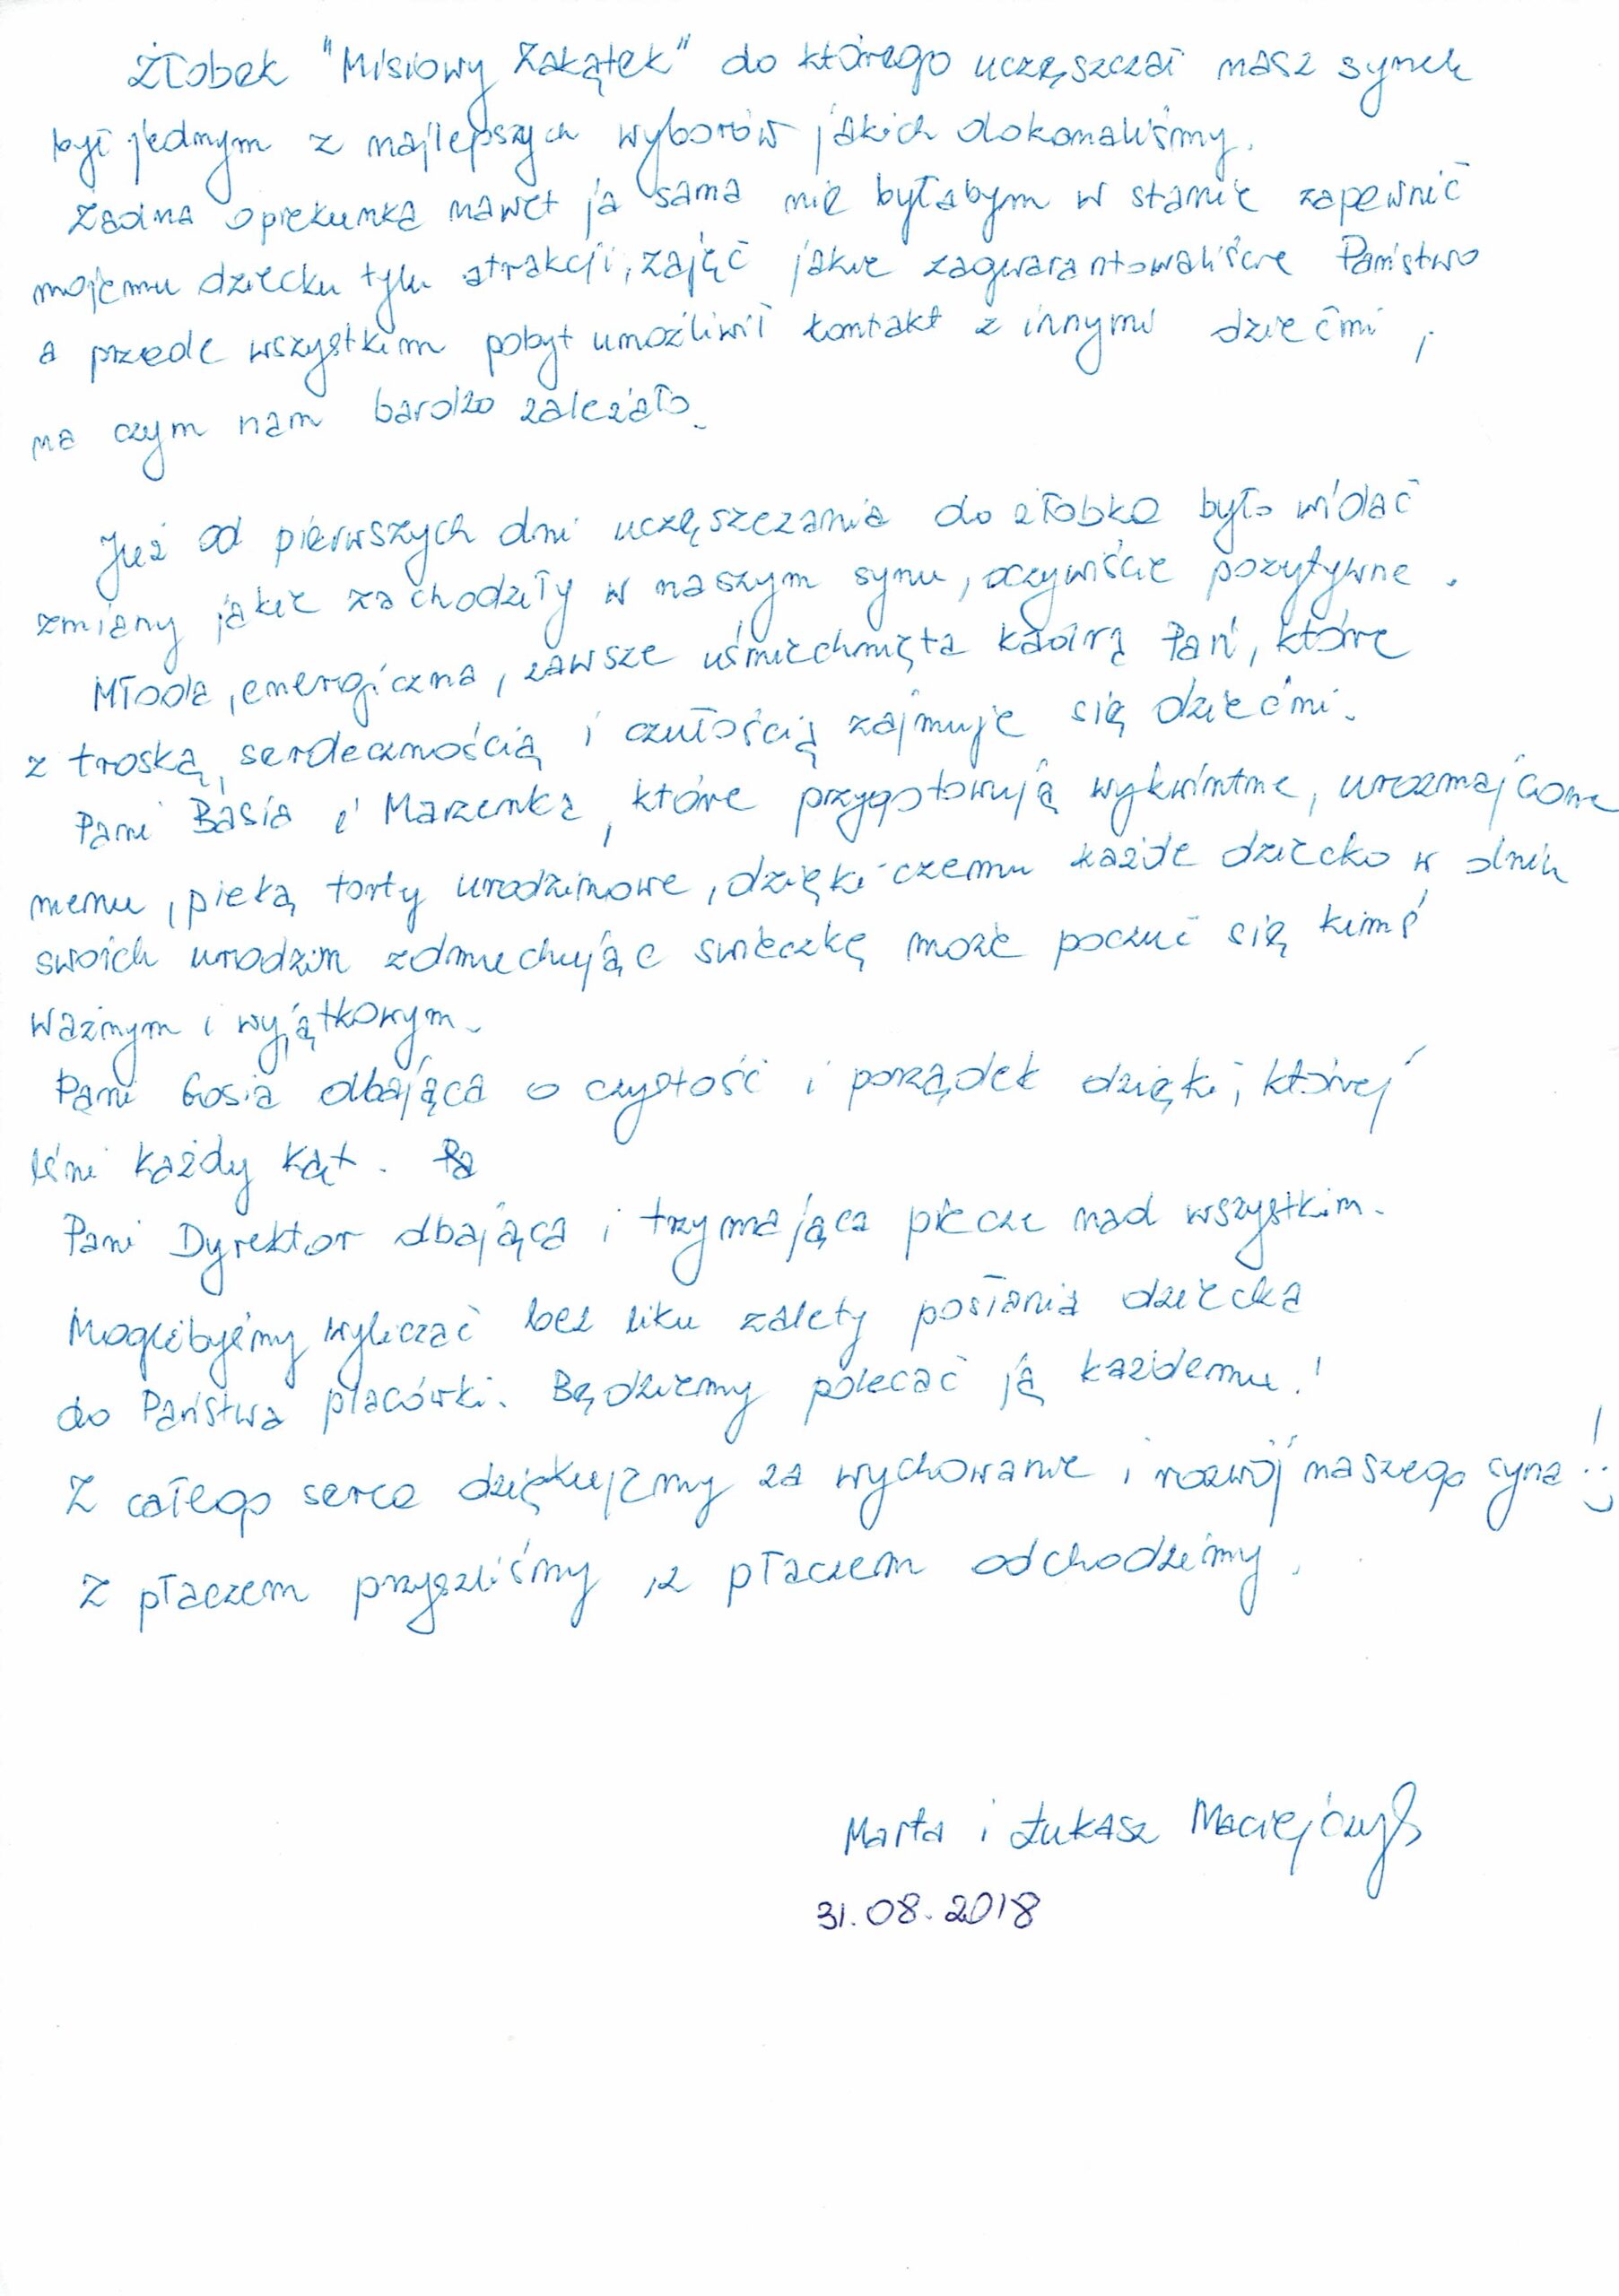 Żłobek "Misiowy Zakątek" do którego uczęszczał nasz synek
był jednym z najlepszych wyborów jakich dokonaliśmy.
Żadna opiekunka nawet ja sama nie byłabym w stanie zapewnić
mojemu dziecku tylu atrakcji, zajęć jakie zagwarantowaliście Państwo
a przede wszystkim pobyt umożliwił kontakt z innymi dziećmi,
na czym nam bardzo zależało.
Już od pierwszych dni uczęszczania do żłobka było widać
zmiany jakie zachodziły w naszym synu, oczywiście pozytywne.
Młoda, energiczna, zawsze uśmiechnięta kadrą Pań, które
z troską, serdecznością i czułością zajmuje się dziećmi.
Pani Basia i Marzenka, które przygotowują wykwintne, urozmajcone
menu, pieką torty urodzinowe, dzięki czemu każde dziecko w dniu
swoich urodzin zdmuchując świeczkę może poczuć się kimś
ważnym i wyjątkowym.
Pani Gosia dbająca o czystość i porządek dzięki, której
lśni każdy kąt. Pa
Pani Dyrektor dbająca i trzymająca piecze nad wszystkim.
Moglibyśmy wyliczać bez liku zalety posłania dziecka
do Państwa placówki. Będziemy polecać ją każdemu!
Z całego serca dziękujemy za wychowanie i rozwój naszego syna! :)
Z płaczem przyszliśmy, z płaczem odchodzimy.
Marta i Łukasz Maciejczyk
31.08.2018